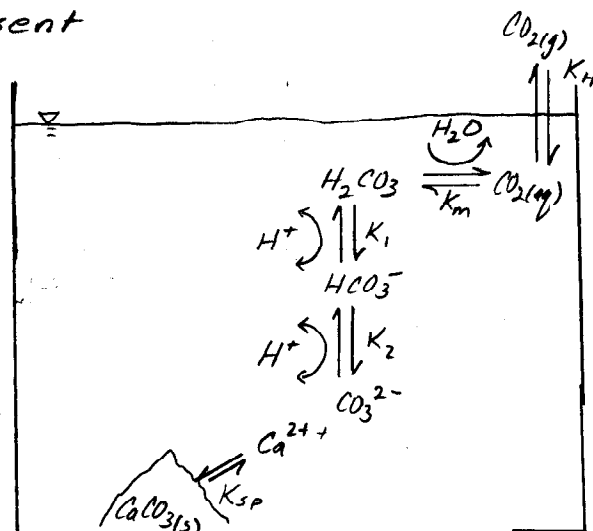 sent
CO₂(g)
K_H
H₂O
H₂CO₃
K_m
CO₂(aq)
H⁺
K₁
HCO₃⁻
H⁺
K₂
CO₃²⁻
Ca²⁺ +
K_sp
CaCO₃(s)